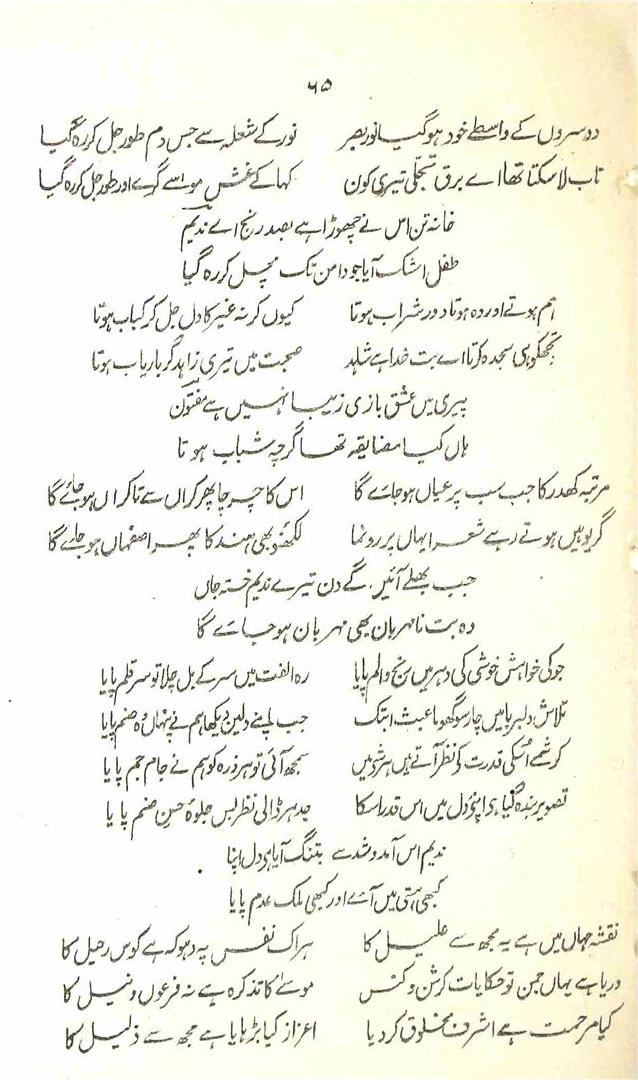 ۶۵
دوسروں کے واسطے خود ہوگیا نور بصر نور کے شعلہ سے جس دم طور جل کر رہ گیا
تاب لا سکتا تھا اے برق تجلی تیری کون کھا کے غش موسےٰ گرے اور طور جل کر رہ گیا
خانہ تن اس نے چھوڑا ہے بصد رنج اے ندیم
طفل اشک آیا جو دامن تک مچل کر رہ گیا
ہم ہوتے اور وہ ہوتا دور شراب ہوتا کیوں کر نہ غیر کا دل جل کر کباب ہوتا
تجھکو ہی سجدہ کرتا اے بت خدا ہے شاہد صحبت میں تیری زاہد گر باریاب ہوتا
پیری میں عشق بازی زیبا نہیں ہے مفتون
ہاں کیا مضایقہ تھا گرچہ شباب ہوتا
مرتبہ کھدر کا جب سب پر عیاں ہوجائے گا اس کا چرچا پھر کراں سے تا کراں ہوجائے گا
گر یوہیں ہوتے رہے شعرا یہاں پر رونما لکھنؤ بھی ہند کا پھر اصفہاں ہوجائے گا
جب بھلے آئیں گے دن تیرے ندیم خستہ جاں
وہ بت نامہربان بھی مہربان ہوجائے گا
جو کی خواہش خوشی کی دہر میں رنج و الم پایا رہ الفت میں سر کے بل چلا تو سر قلم پایا
تلاش دلبر با میں چارسو گھوما عبث ابتک جب اپنے دلمیں دیکھا ہم نے پنہاں وہ صنم پایا
کرشمے اسکی قدرت کے نظر آتے ہیں ہر شے میں سمجھ آئی تو ہر ذرہ کو ہم نے جام جم پایا
تصویر بندہ گیا ہے اپنے دل میں اس قدر اسکا جدہر ڈالی نظر بس جلوۂ حسن صنم پایا
ندیم اس آمد و شد سے بتنگ آیا ہے دل اپنا
کبھی ہستی میں آئے اور کبھی ملک عدم پایا
نقشہ جہاں میں ہے یہ مجھ سے علیل کا ہر اک نفس پہ دہوکہ ہے کوس رحیل کا
دریا ہے یہاں جمن تو حکایات کرشن و کنس موسےٰ کا تذکرہ ہے نہ فرعون و نیل کا
کیا مرحمت ہے اشرف مخلوق کر دیا اعزاز کیا بڑہایا ہے مجھ سے ذلیل کا